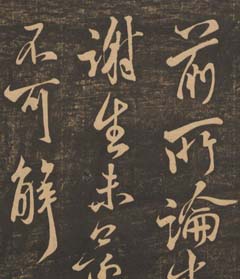 前所論
謝生未
不可解